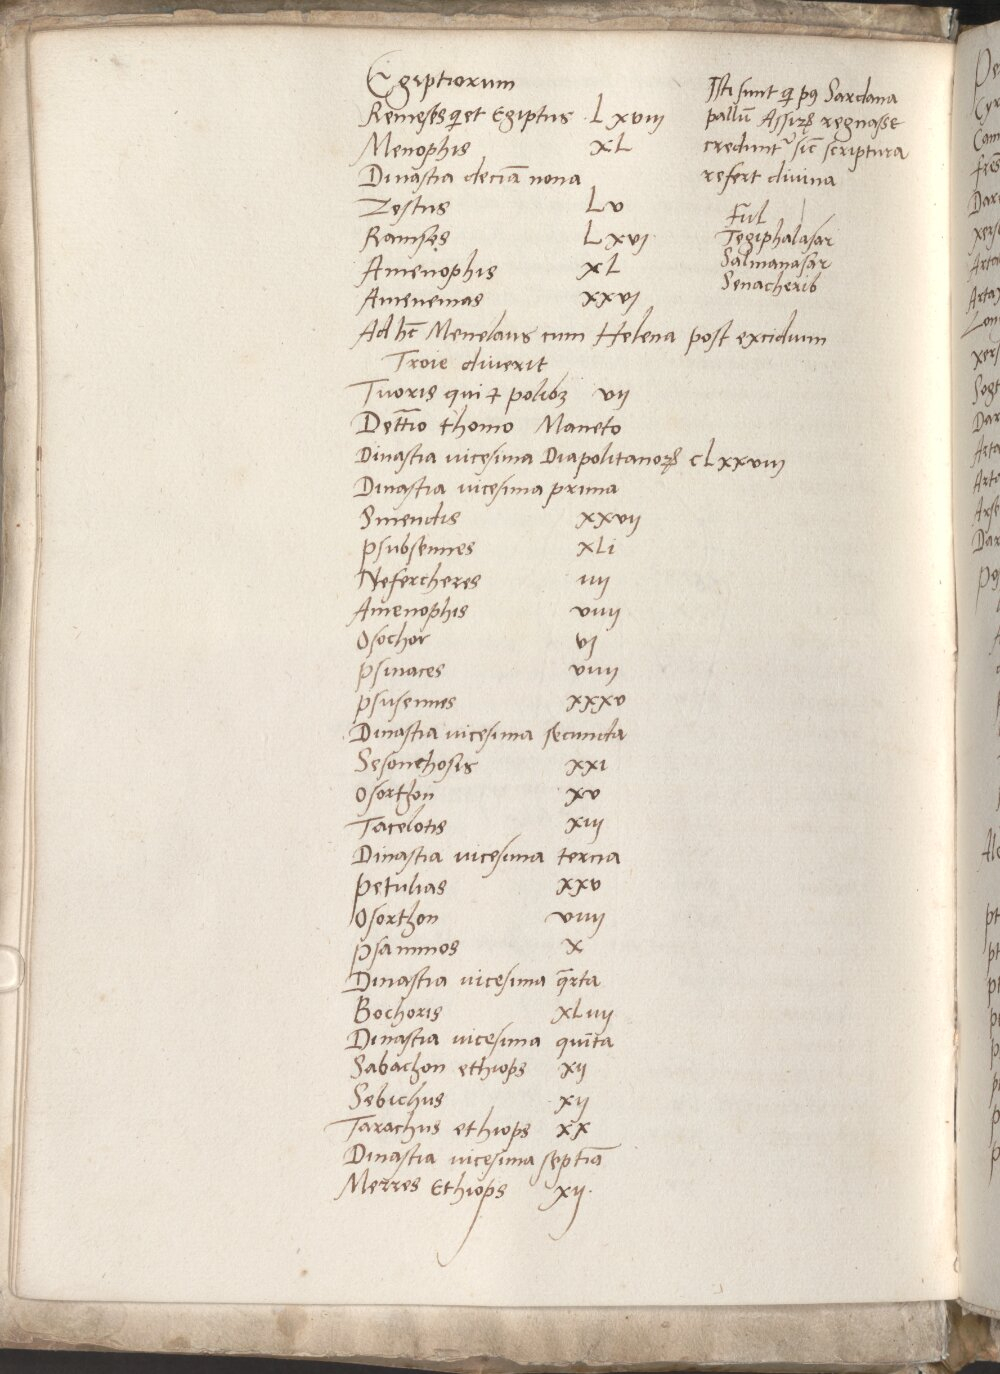 Egiptiorum
Remeses q̃ et Egiptus Lxviij
Menophis xL
Dinastia deciã nona
Zestus Lv
Ramses Lxvj
Amenophis xL
Amenemas xxvj
Ad hc̃ Menelaus cum Helena post excidium
Troie diuerit
Tuoris qui ⁊ polibꝫ vij
Dettio thomo Maneto
Dinastia uicesima Diapolitanoꝝ cLxxviij
Dinastia uicesima prima
Smendis xxvij
Psubsennes xLi
Nefercheres iiij
Amenophis viiij
Osochor vj
Psinaces viiij
Psusennes xxxv
Dinastia uicesima secunda
Sesonchosis xxi
Osorthon xv
Tacelotis xiij
Dinastia uicesima tercia
Petulias xxv
Osorthon viiij
Psammos x
Dinastia uicesima q̃rta
Bochoris xLiiij
Dinastia uicesima quĩta
Sabachon ethiops xij
Sebichus xij
Tarachus ethiops xx
Dinastia uicesima septiã
Merres Ethiops xij
Isti sunt q̃ pꝰ Sardana
pallũ Assiꝝ regnasse
creduntᷣ sic̃ scriptura
refert diuina
Ful
Tegiphalasar
Salmanasar
Senacherib